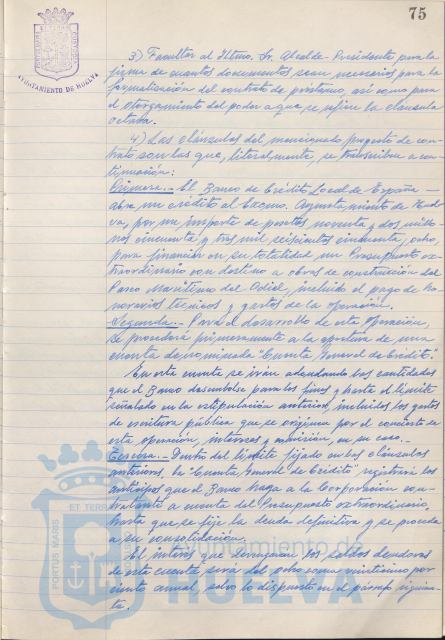 75
AYUNTAMIENTO DE HUELVA
3) Facultar al Iltmo. Sr. Alcalde-Presidente para la
firma de cuantos documentos sean necesarios para la
formalización del contrato de préstamo, así como para
el otorgamiento del poder a que se refiere la cláusula
octava.
4) Las cláusulas del mencionado proyecto de con-
trato son las que, literalmente, se transcriben a con-
tinuación:
Primera.- El Banco de Crédito Local de España
abre un crédito al Excmo. Ayuntamiento de Huel-
va, por un importe de pesetas noventa y dos millo-
nes cincuenta y tres mil seiscientos cincuenta, ocho
para financiar en su totalidad un Presupuesto ex-
traordinario con destino a obras de construcción del
Paseo Marítimo del Odiel, incluido el pago de ho-
norarios técnicos y gastos de la operación.
Segunda.- Para el desarrollo de esta operación,
se procederá primeramente a la apertura de una
cuenta denominada "Cuenta General de Crédito".
En esta cuenta se irán adeudando las cantidades
que el Banco desembolse para los fines y hasta el límite
señalado en la estipulación anterior, incluidos los gastos
de escritura pública que se originen por el concierto de
esta operación, intereses y comisión, en su caso.-
Tercera.- Dentro del límite fijado en las cláusulas
anteriores, la "Cuenta General de Crédito" registrará los
anticipos que el Banco haga a la Corporación con-
tratante a cuenta del Presupuesto extraordinario,
hasta que se fije la deuda definitiva y se proceda
a su consolidación.
El interés que devengarán los saldos deudores
de esta cuenta será del ocho coma veinticinco por
ciento anual, salvo lo dispuesto en el párrafo siguien-
te.
PORTUS MARIS ET TERRAE
Ayuntamiento de
HUELVA